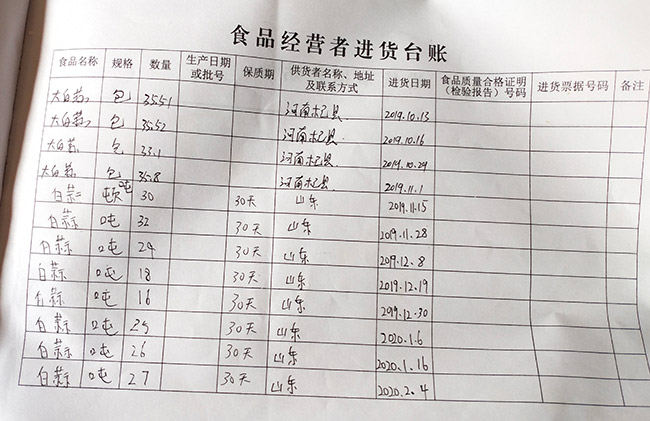 食品经营者进货台账
食品名称 规格 数量 生产日期或批号 保质期 供货者名称、地址及联系方式 进货日期 食品质量合格证明(检验报告)号码 进货票据号码 备注
大白蒜 包 35.51 河南杞县 2019.10.13
大白蒜 包 35.52 河南杞县 2019.10.16
大白蒜 包 33.1 河南杞县 2019.10.29
大白蒜 包 35.8 河南杞县 2019.11.1
白蒜 吨 30 30天 山东 2019.11.15
白蒜 吨 32 30天 山东 2019.11.28
白蒜 吨 24 30天 山东 2019.12.8
白蒜 吨 18 30天 山东 2019.12.19
白蒜 吨 16 30天 山东 2019.12.30
白蒜 吨 25 30天 山东 2020.1.6
白蒜 吨 26 30天 山东 2020.1.16
白蒜 吨 27 30天 山东 2020.2.4